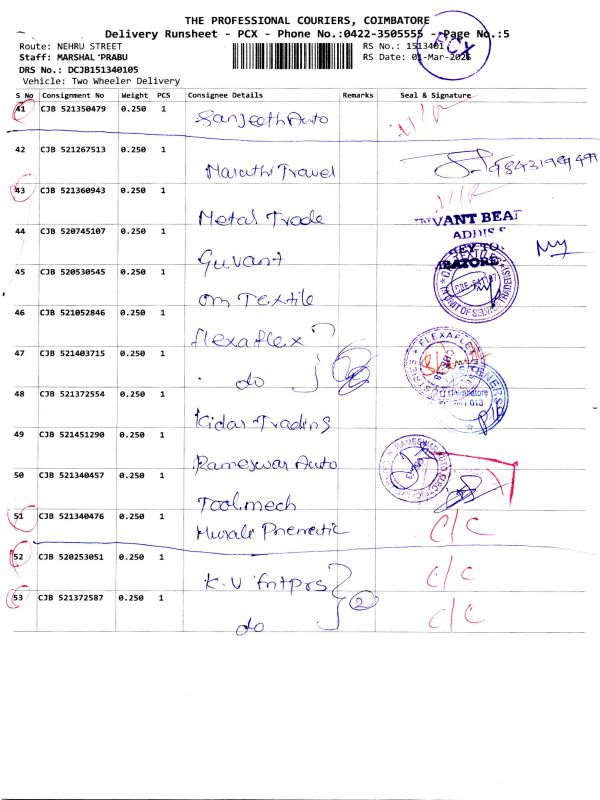 THE PROFESSIONAL COURIERS, COIMBATORE
Delivery Runsheet - PCX - Phone No.:0422-3505555 - Page No.:5
PCX
Route: NEHRU STREET
RS No.: 1513401
Staff: MARSHAL PRABU
RS Date: 01-Mar-2026
DRS No.: DCJB151340105
Vehicle: Two Wheeler Delivery
S No Consignment No Weight PCS Consignee Details Remarks Seal & Signature
41 CJB 521350479 0.250 1 Sanjeeth Auto
42 CJB 521267513 0.250 1 Maruthi Travel
43 CJB 521360943 0.250 1 Metal Trade
44 CJB 520745107 0.250 1 Guvant
45 CJB 520530545 0.250 1 Om Textile
46 CJB 521052846 0.250 1 flexaflex
47 CJB 521403715 0.250 1 do
48 CJB 521372554 0.250 1 Kidar Trading
49 CJB 521451290 0.250 1 Rameswar Auto
50 CJB 521340457 0.250 1 Toolmech
51 CJB 521340476 0.250 1 Murali Pnematic C/C
52 CJB 520253051 0.250 1 K.V Entprs C/C
53 CJB 521372587 0.250 1 do 2 C/C